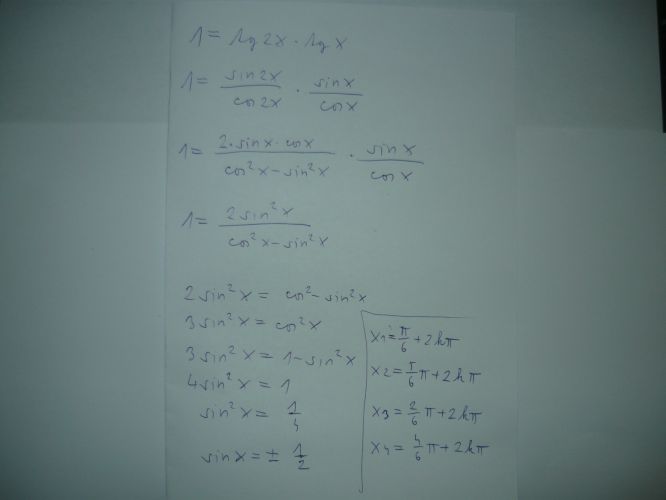 1 = tg 2x · tg x
1 = sin2x/cos2x · sinx/cosx
1 = 2·sinx·cosx/cos²x-sin²x · sinx/cosx
1 = 2sin²x/cos²x-sin²x
2sin²x = cos²-sin²x
3sin²x = cos²x
3sin²x = 1-sin²x
4sin²x = 1
sin²x = 1/4
sinx = ± 1/2
x1 = π/6 + 2kπ
x2 = 5/6 π + 2kπ
x3 = 2/6 π + 2kπ
x4 = 4/6 π + 2kπ